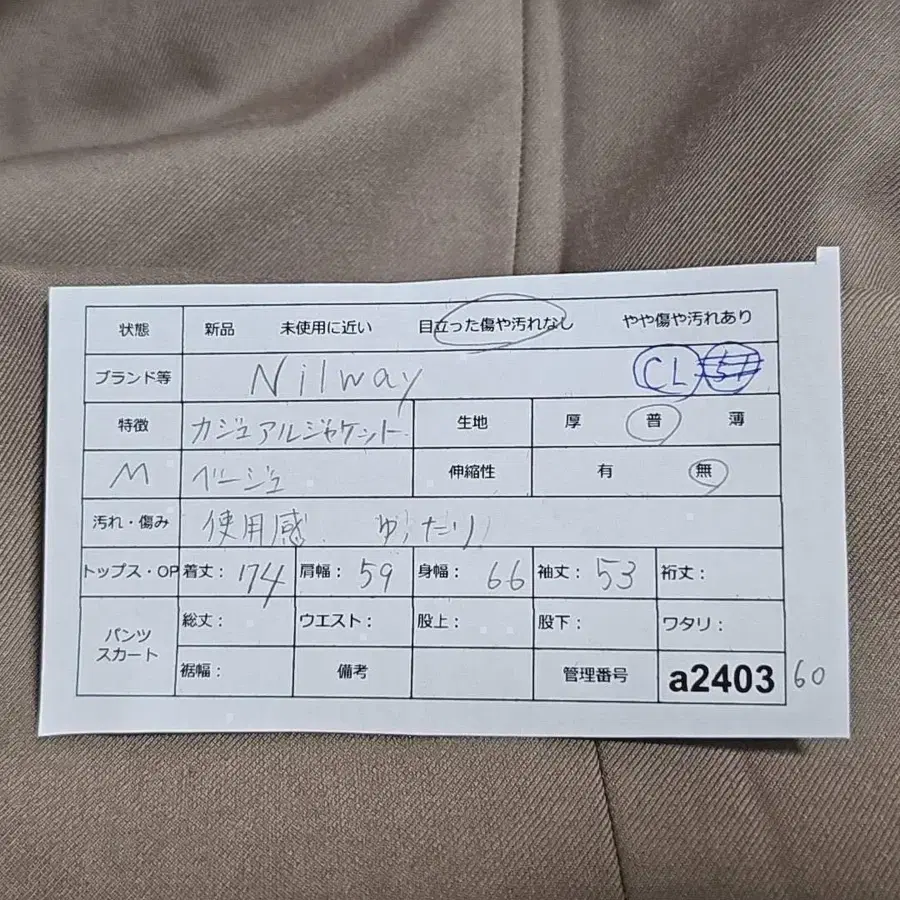 状態 新品 未使用に近い 目立った傷や汚れなし やや傷や汚れあり
ブランド等 Nilway CL
特徴 カジュアルジャケット 生地 厚 普 薄
M ベージュ 伸縮性 有 無
汚れ・傷み 使用感 ゆったり
トップス・OP 着丈: 74 肩幅: 59 身幅: 66 袖丈: 53 裄丈:
パンツ スカート 総丈: ウエスト: 股上: 股下: ワタリ:
裾幅: 備考 管理番号 a2403 60